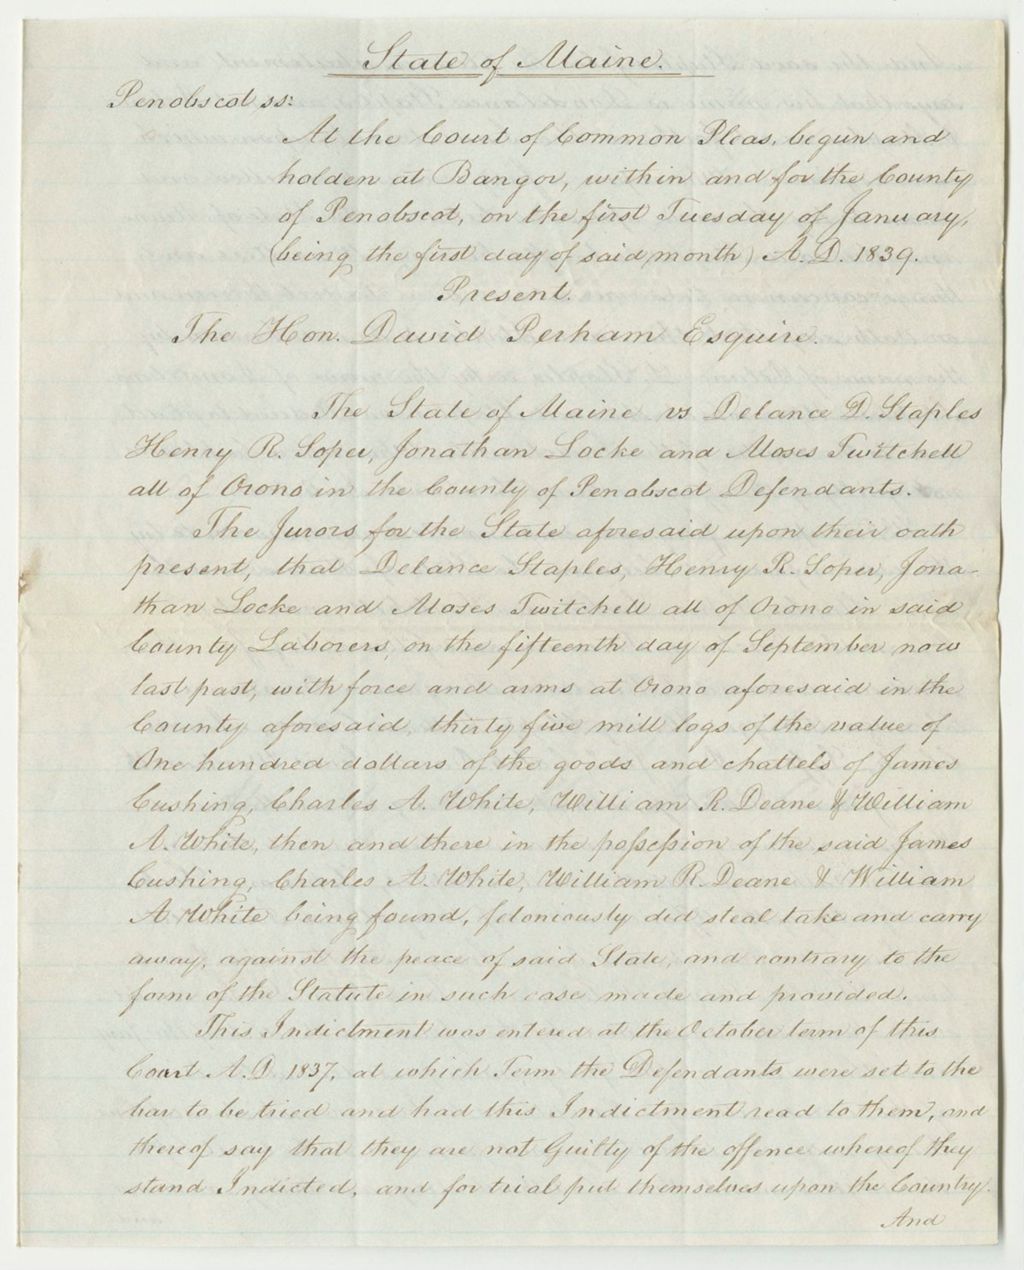 State of Maine.
Penobscot ss:
At the Court of Common Pleas, begun and
holden at Bangor, within and for the County
of Penobscot, on the first Tuesday of January,
(being the first day of said month) A. D. 1839.
Present.
The Hon. David Perham Esquire.
The State of Maine vs Delance D. Staples
Henry R. Soper, Jonathan Locke and Moses Twitchell
all of Orono in the County of Penobscot Defendants.
The Jurors for the State aforesaid upon their oath
present, that Delance Staples, Henry R. Soper, Jona-
than Locke and Moses Twitchell all of Orono in said
County Laborers, on the fifteenth day of September now
last past, with force and arms at Orono aforesaid in the
County aforesaid, thirty five mill logs of the value of
One hundred dollars of the goods and chattels of James
Cushing, Charles A. White, William R. Deane & William
A. White, then and there in the possession of the said James
Cushing, Charles A. White, William R. Deane & William
A. White being found, feloniously did steal take and carry
away, against the peace of said State, and contrary to the
form of the Statute in such case made and provided.
This Indictment was entered at the October term of this
Court A. D. 1837, at which Term the Defendants were set to the
bar to be tried and had this Indictment read to them, and
thereof say that they are not Guilty of the offence whereof they
stand Indicted, and for trial put themselves upon the Country.
And